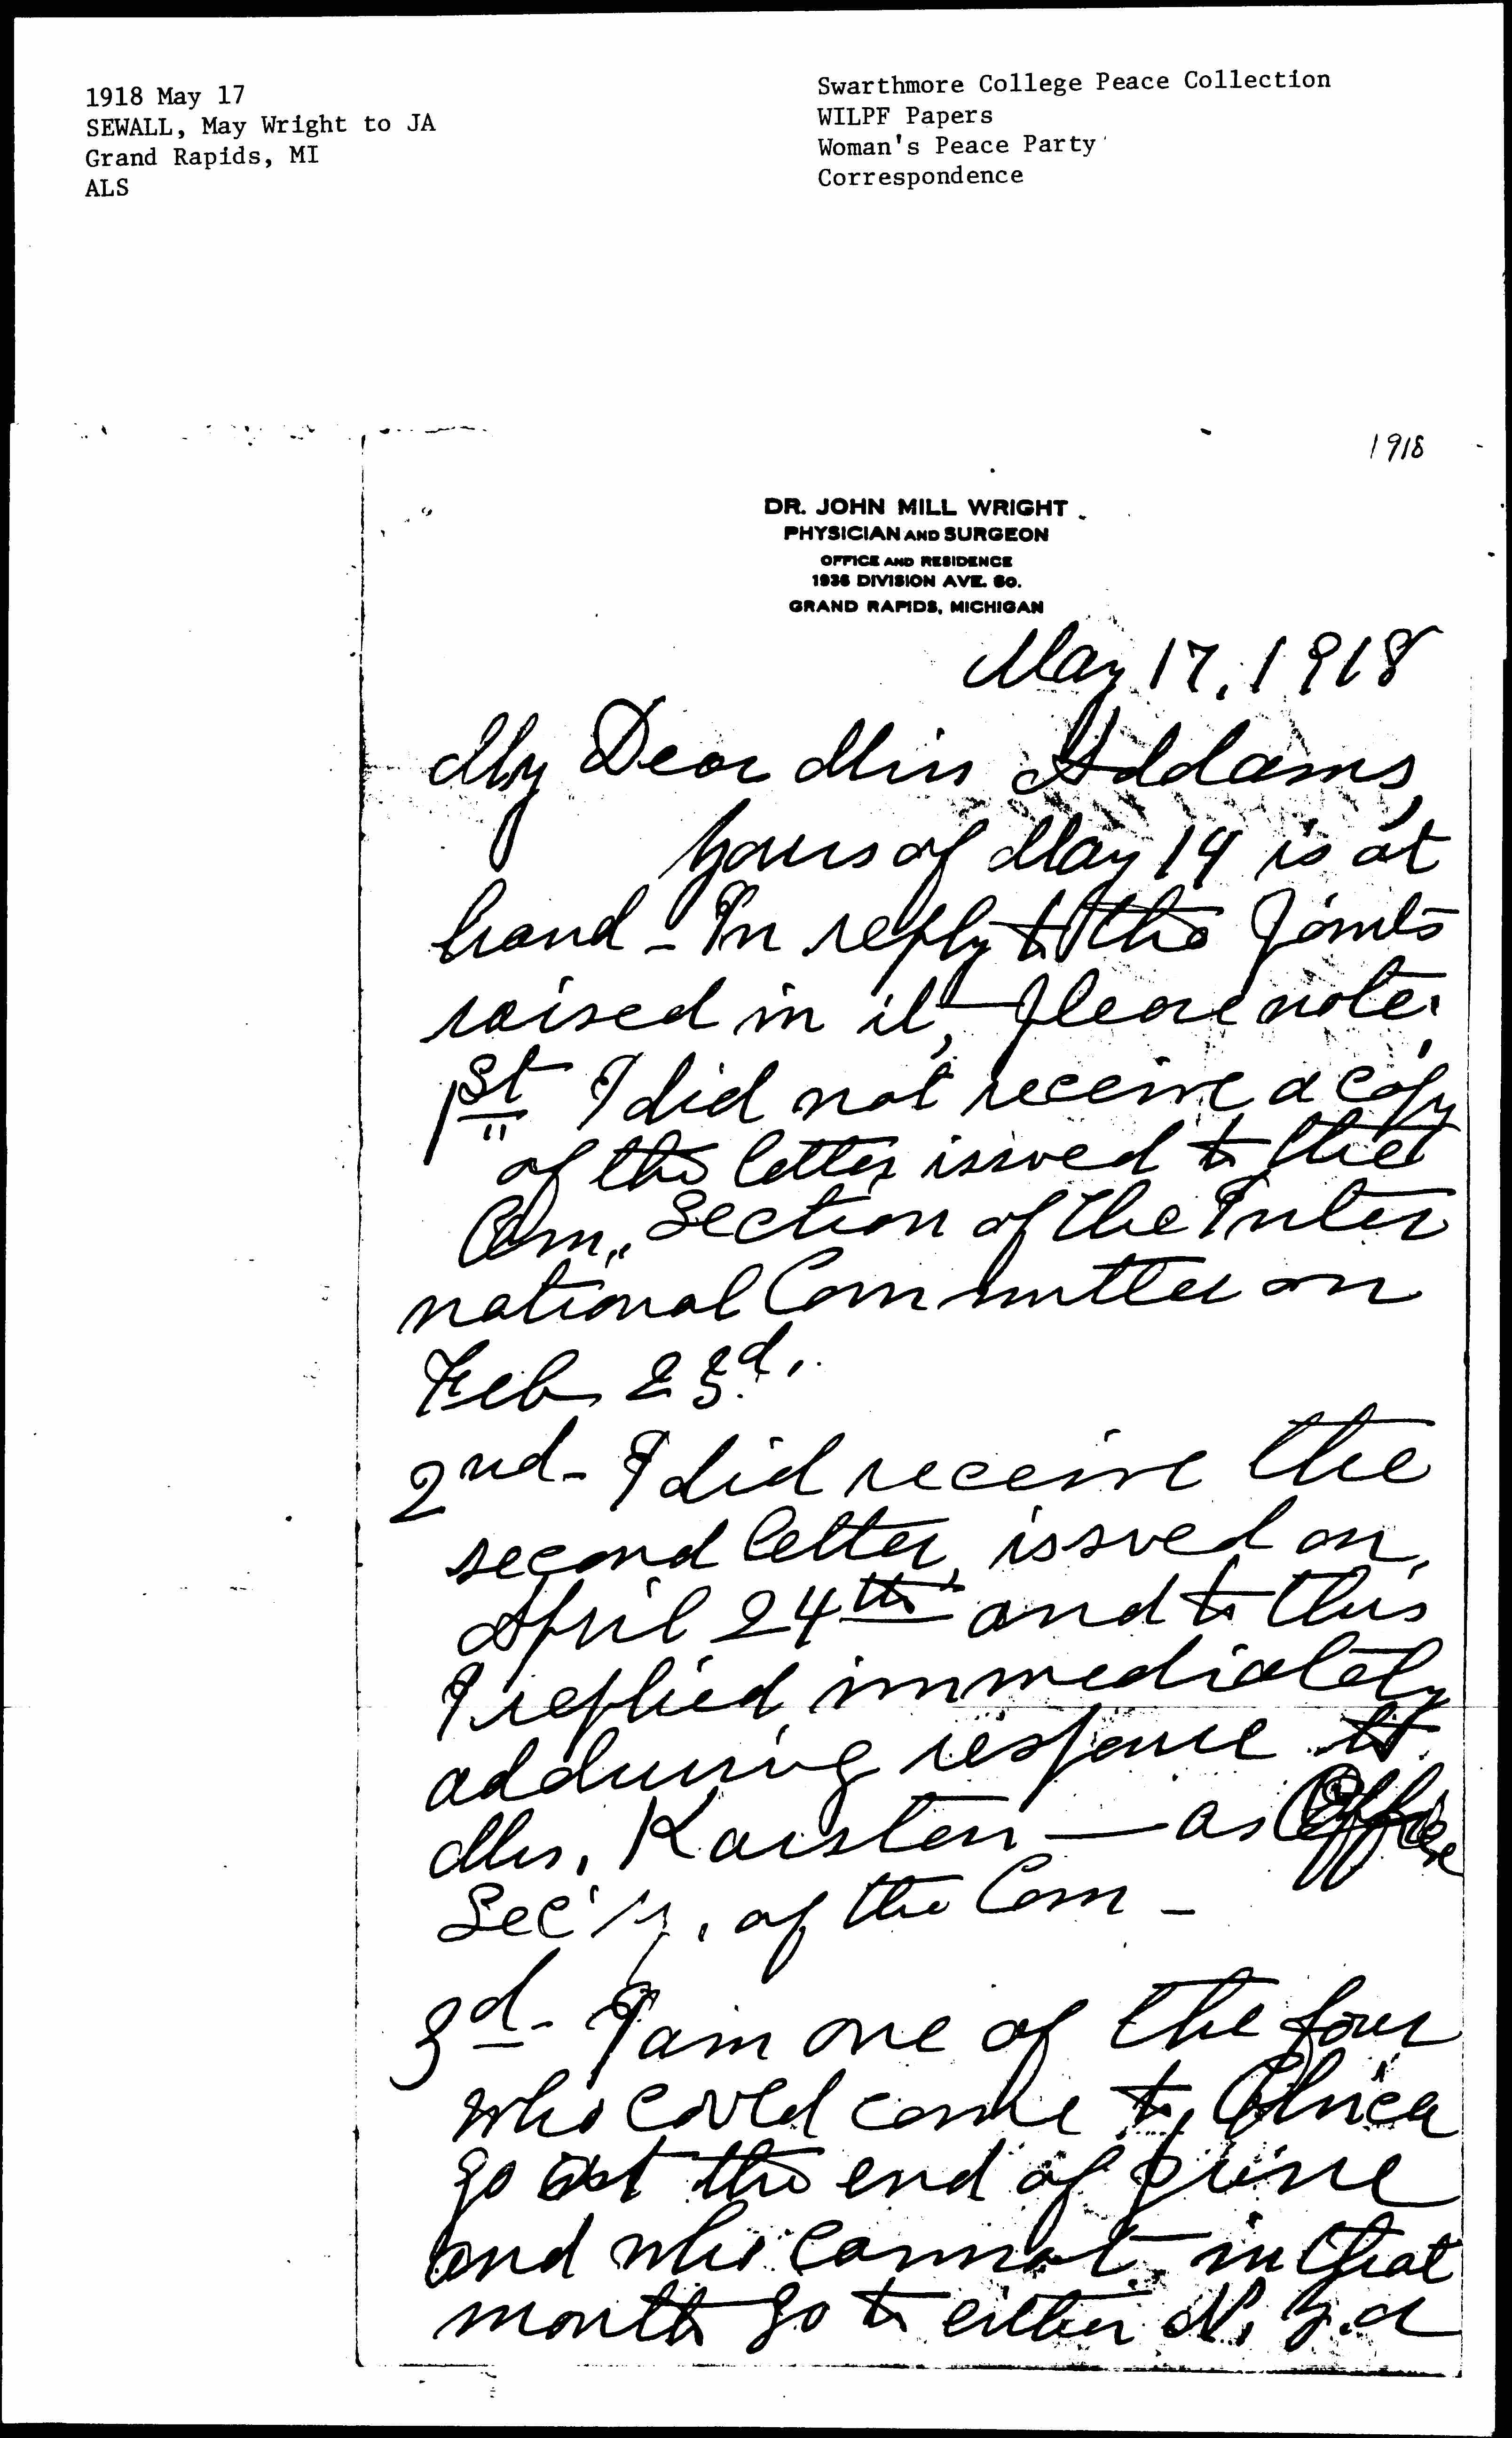 1918 May 17
SEWALL, May Wright to JA
Grand Rapids, MI
ALS
Swarthmore College Peace Collection
WILPF Papers
Woman's Peace Party
Correspondence
1918
DR. JOHN MILL WRIGHT
PHYSICIAN AND SURGEON
OFFICE AND RESIDENCE
1936 DIVISION AVE. SO.
GRAND RAPIDS, MICHIGAN
May 17, 1918
My Dear Miss Addams,
Yours of May 14 is at
hand - In reply to the points
raised in it, please note.
1st I did not receive a copy
of the letter issued to the
Am. Section of the Inter
national Committee on
Feb. 23d.
2nd - I did receive the
second letter, issued on
April 24th and to this
I replied immediately
addressing response to
Mrs. Karsten — as Office
Sec'y. of the Com -
3d - I am one of the four
who could come to Chica
go at the end of June
and who cannot in that
month go to either N. Y. or